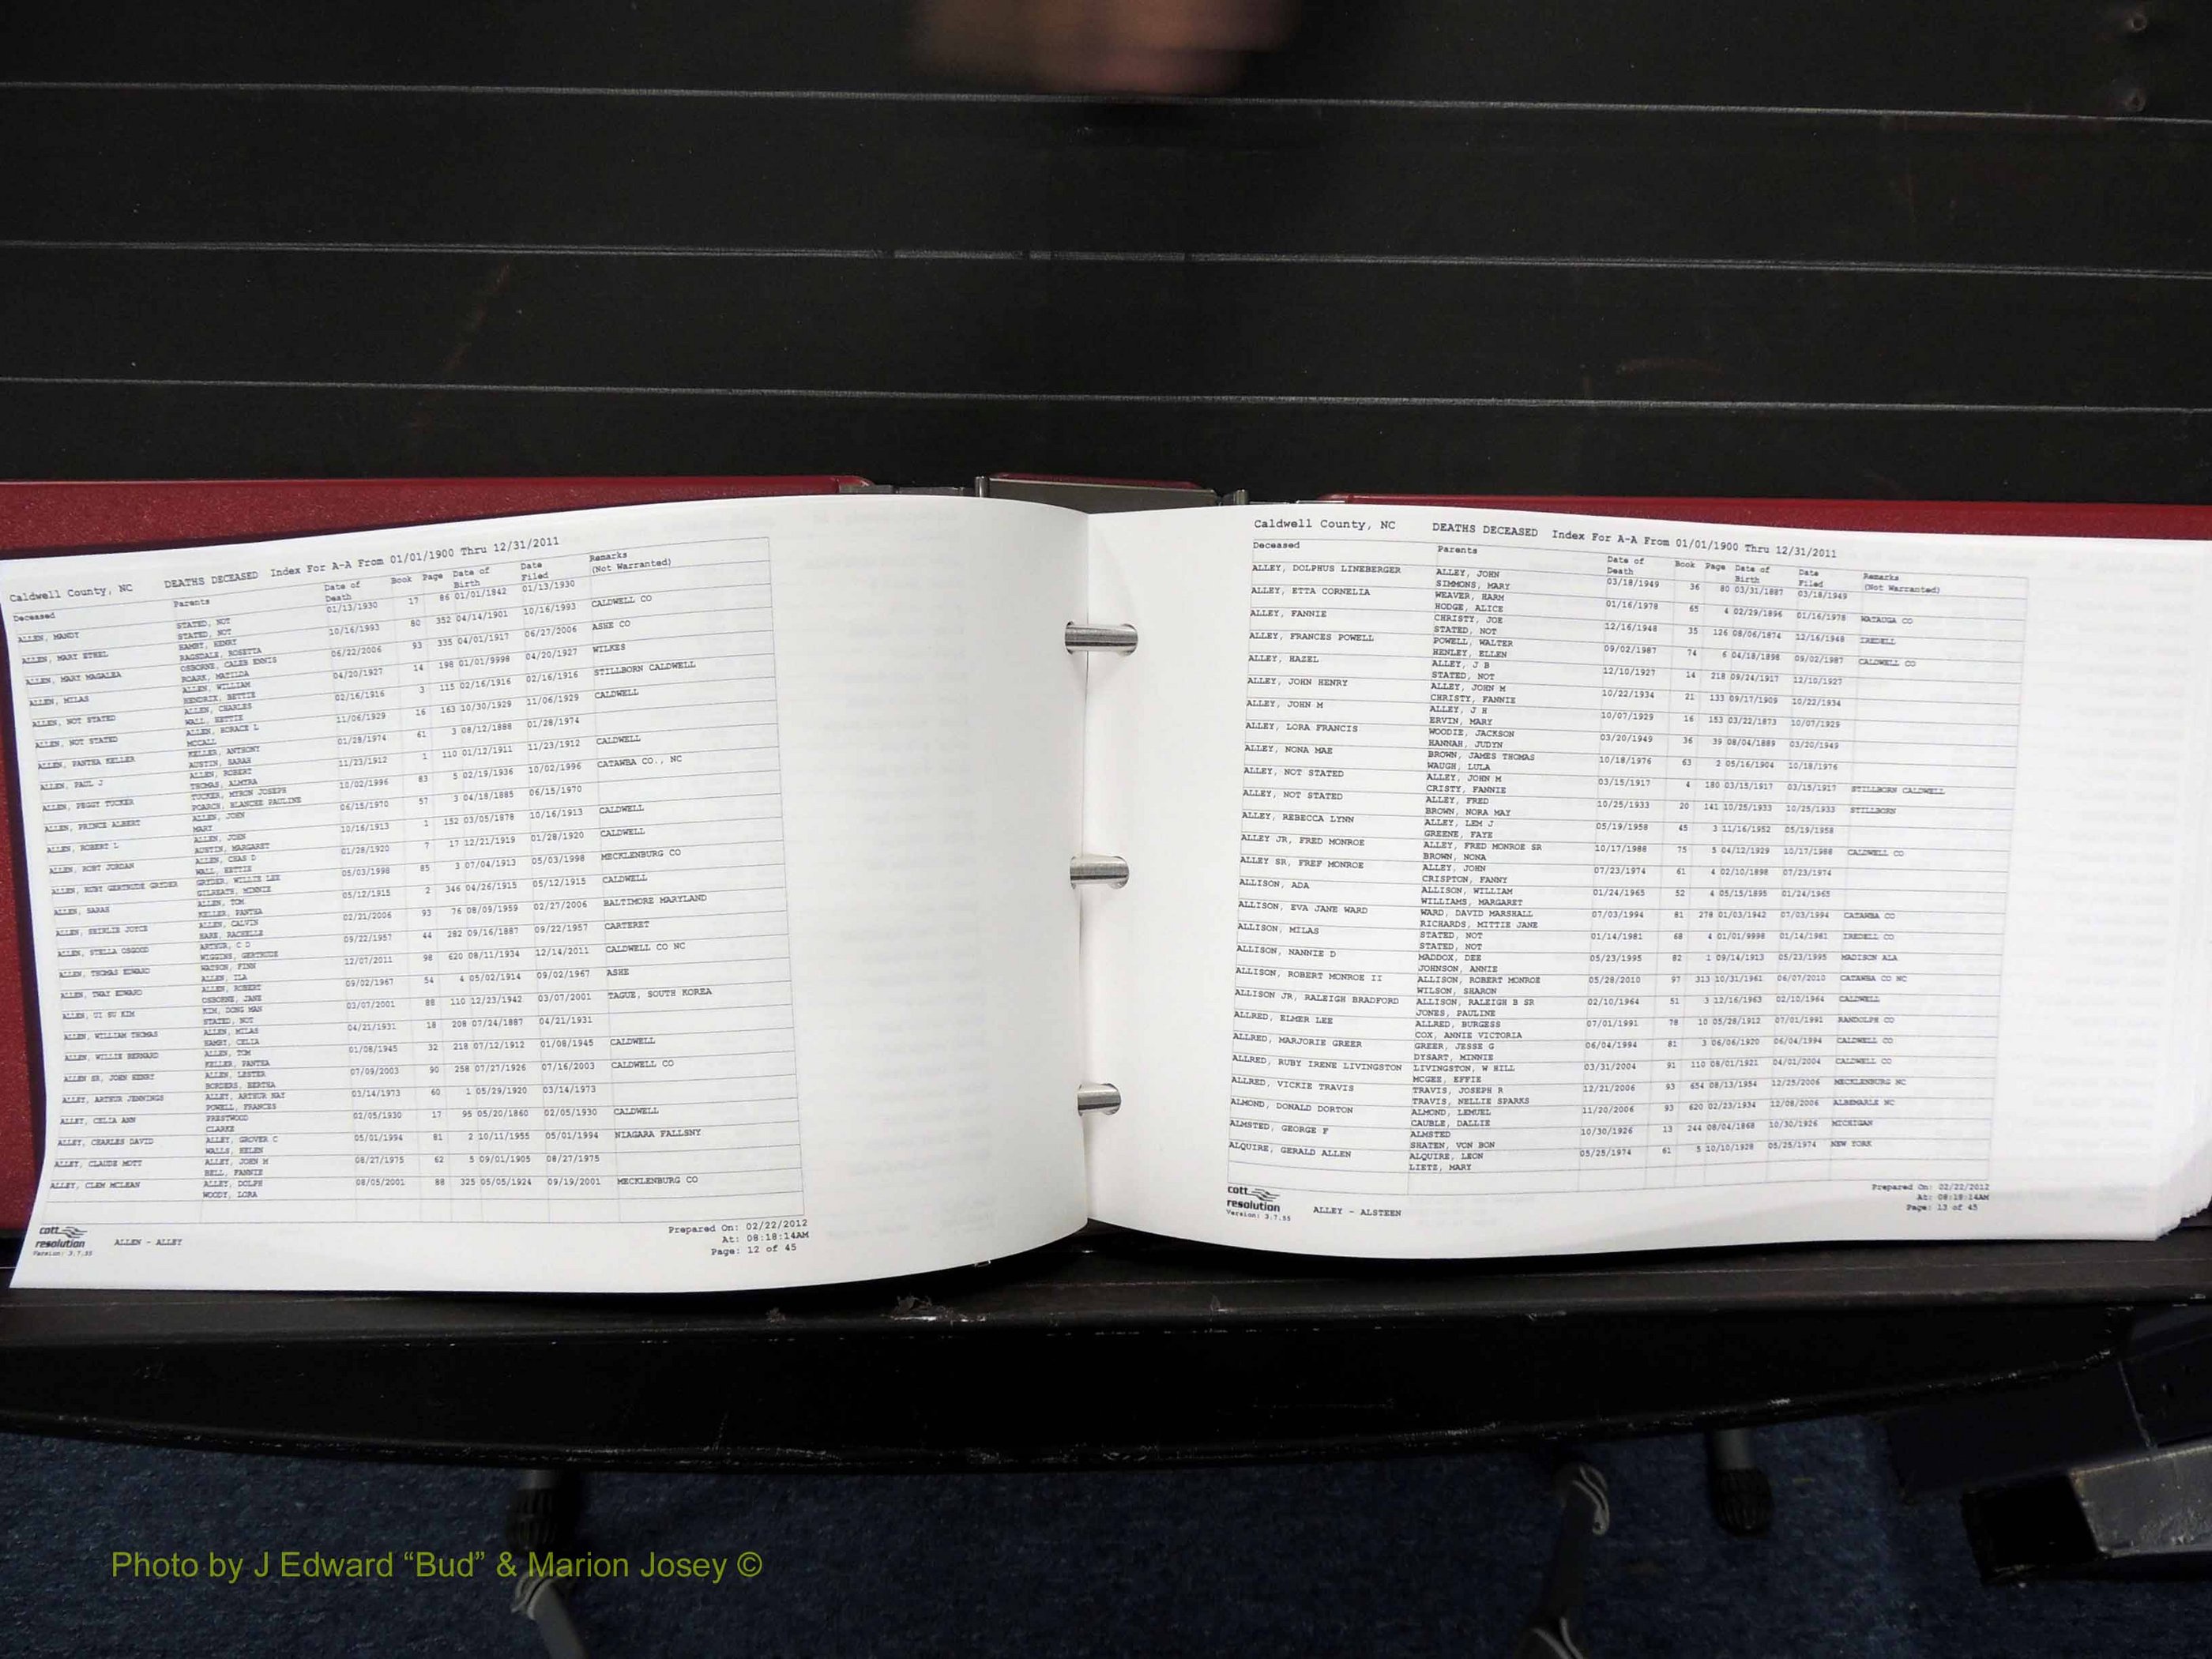 Caldwell County, NC DEATHS DECEASED Index For A-A From 01/01/1900 Thru 12/31/2011
Deceased Parents Date of Death Book Page Date of Birth Date Filed Remarks (Not Warranted)
ALLEN, MANDY STATED, NOT 01/13/1930 17 86 01/01/1842 01/13/1930
STATED, NOT
ALLEN, MARY ETHEL HAMBY, HENRY 10/16/1993 80 352 04/14/1901 10/16/1993 CALDWELL CO
RAGSDALE, ROSETTA
ALLEN, MARY MAGALEA OSBORNE, CALEB ENNIS 06/22/2006 93 335 04/01/1917 06/27/2006 ASHE CO
ROARK, MATILDA
ALLEN, MILAS ALLEN, WILLIAM 04/20/1927 14 198 01/01/9998 04/20/1927 WILKES
HENDRIX, BETTIE
ALLEN, NOT STATED ALLEN, CHARLES 02/16/1916 3 115 02/16/1916 02/16/1916 STILLBORN CALDWELL
WALL, HETTIE
ALLEN, NOT STATED ALLEN, HORACE L 11/06/1929 16 163 10/30/1929 11/06/1929 CALDWELL
MCCALL
ALLEN, PANTHA KELLER KELLER, ANTHONY 01/28/1974 61 3 08/12/1888 01/28/1974
AUSTIN, SARAH
ALLEN, PAUL J ALLEN, ROBERT 11/23/1912 1 110 01/12/1911 11/23/1912 CALDWELL
THOMAS, ALMYRA
ALLEN, PEGGY TUCKER TUCKER, MYRON JOSEPH 10/02/1996 83 5 02/19/1936 10/02/1996 CATAWBA CO., NC
POARCH, BLANCHE PAULINE
ALLEN, PRINCE ALBERT ALLEN, JOHN 06/15/1970 57 3 04/18/1885 06/15/1970
MARY
ALLEN, ROBERT L ALLEN, JOHN 10/16/1913 1 152 03/05/1878 10/16/1913 CALDWELL
AUSTIN, MARGARET
ALLEN, ROBT JORDAN ALLEN, CHAS D 01/28/1920 7 17 12/21/1919 01/28/1920 CALDWELL
WALL, HETTIE
ALLEN, RUBY GERTRUDE GRYDER GRYDER, WILLIE LEE 05/03/1998 85 3 07/04/1913 05/03/1998 MECKLENBURG CO
GILREATH, MINNIE
ALLEN, SARAH ALLEN, TOM 05/12/1915 2 346 04/26/1915 05/12/1915 CALDWELL
KELLER, PANTHA
ALLEN, SHIRLIE JOYCE ALLEN, CALVIN 02/21/2006 93 76 08/09/1959 02/27/2006 BALTIMORE MARYLAND
HARE, RACHELLE
ALLEN, STELLA OSGOOD ARTHUR, C D 09/22/1957 44 282 09/16/1887 09/22/1957 CARTERET
WIGGINS, GERTRUDE
ALLEN, THOMAS EDWARD WATSON, FINN 12/07/2011 98 620 08/11/1934 12/14/2011 CALDWELL CO NC
ALLEN, ILA
ALLEN, TWAY EDWARD ALLEN, ROBERT 09/02/1967 54 4 05/02/1914 09/02/1967 ASHE
OSBORNE, JANE
ALLEN, UI SU KIM KIM, DONG MAN 03/07/2001 88 110 12/23/1942 03/07/2001 TAGUE, SOUTH KOREA
STATED, NOT
ALLEN, WILLIAM THOMAS ALLEN, MILAS 04/21/1931 18 208 07/24/1887 04/21/1931
HAMBY, CELIA
ALLEN, WILLIE BERNARD ALLEN, TOM 01/08/1945 32 218 07/12/1912 01/08/1945 CALDWELL
KELLER, PANTHA
ALLEN SR, JOHN HENRY ALLEN, LESTER 07/09/2003 90 258 07/27/1926 07/16/2003 CALDWELL CO
BORDERS, BERTHA
ALLEY, ARTHUR JENNINGS ALLEY, ARTHUR NAY 03/14/1973 60 1 05/29/1920 03/14/1973
POWELL, FRANCES
ALLEY, CELIA ANN PRESTWOOD 02/05/1930 17 95 05/20/1860 02/05/1930 CALDWELL
CLARKE
ALLEY, CHARLES DAVID ALLEY, GROVER C 05/01/1994 81 2 10/11/1955 05/01/1994 NIAGARA FALLSNY
WALLS, HELEN
ALLEY, CLAUDE MOTT ALLEY, JOHN M 08/27/1975 62 5 09/01/1905 08/27/1975
BELL, FANNIE
ALLEY, CLEM MCLEAN ALLEY, DOLPH 08/05/2001 88 325 05/05/1924 09/19/2001 MECKLENBURG CO
WOODY, LORA
cott
resolution
Version: 3.7.55
ALLEN - ALLEY
Prepared On: 02/22/2012
At: 08:18:14AM
Page: 12 of 45
Caldwell County, NC DEATHS DECEASED Index For A-A From 01/01/1900 Thru 12/31/2011
Deceased Parents Date of Death Book Page Date of Birth Date Filed Remarks (Not Warranted)
ALLEY, DOLPHUS LINEBERGER ALLEY, JOHN 03/18/1949 36 80 03/31/1887 03/18/1949
SIMMONS, MARY
ALLEY, ETTA CORNELIA WEAVER, HARM 01/16/1978 65 4 02/29/1896 01/16/1978 WATAUGA CO
HODGE, ALICE
ALLEY, FANNIE CHRISTY, JOE 12/16/1948 35 126 08/06/1874 12/16/1948 IREDELL
STATED, NOT
ALLEY, FRANCES POWELL POWELL, WALTER 09/02/1987 74 6 04/18/1898 09/02/1987 CALDWELL CO
HENLEY, ELLEN
ALLEY, HAZEL ALLEY, J B 12/10/1927 14 218 09/24/1917 12/10/1927
STATED, NOT
ALLEY, JOHN HENRY ALLEY, JOHN M 10/22/1934 21 133 09/17/1909 10/22/1934
CHRISTY, FANNIE
ALLEY, JOHN M ALLEY, J H 10/07/1929 16 153 03/22/1873 10/07/1929
ERVIN, MARY
ALLEY, LORA FRANCIS WOODIE, JACKSON 03/20/1949 36 39 08/04/1889 03/20/1949
HANNAH, JUDYN
ALLEY, NONA MAE BROWN, JAMES THOMAS 10/18/1976 63 2 05/16/1904 10/18/1976
WAUGH, LULA
ALLEY, NOT STATED ALLEY, JOHN M 03/15/1917 4 180 03/15/1917 03/15/1917 STILLBORN CALDWELL
CRISTY, FANNIE
ALLEY, NOT STATED ALLEY, FRED 10/25/1933 20 141 10/25/1933 10/25/1933 STILLBORN
BROWN, NORA MAY
ALLEY, REBECCA LYNN ALLEY, LEM J 05/19/1958 45 3 11/16/1952 05/19/1958
GREENE, FAYE
ALLEY JR, FRED MONROE ALLEY, FRED MONROE SR 10/17/1988 75 5 04/12/1929 10/17/1988 CALDWELL CO
BROWN, NONA
ALLEY SR, FREF MONROE ALLEY, JOHN 07/23/1974 61 4 02/10/1898 07/23/1974
CRISPTON, FANNY
ALLISON, ADA ALLISON, WILLIAM 01/24/1965 52 4 05/15/1895 01/24/1965
WILLIAMS, MARGARET
ALLISON, EVA JANE WARD WARD, DAVID MARSHALL 07/03/1994 81 278 01/03/1942 07/03/1994 CATAWBA CO
RICHARDS, MITTIE JANE
ALLISON, MILAS STATED, NOT 01/14/1981 68 4 01/01/9998 01/14/1981 IREDELL CO
STATED, NOT
ALLISON, NANNIE D MADDOX, DEE 05/23/1995 82 1 09/14/1913 05/23/1995 MADISON ALA
JOHNSON, ANNIE
ALLISON, ROBERT MONROE II ALLISON, ROBERT MONROE 05/28/2010 97 313 10/31/1961 06/07/2010 CATAWBA CO NC
WILSON, SHARON
ALLISON JR, RALEIGH BRADFORD ALLISON, RALEIGH B SR 02/10/1964 51 3 12/16/1963 02/10/1964 CALDWELL
JONES, PAULINE
ALLRED, ELMER LEE ALLRED, BURGESS 07/01/1991 78 10 05/28/1912 07/01/1991 RANDOLPH CO
COX, ANNIE VICTORIA
ALLRED, MARJORIE GREER GREER, JESSE G 06/04/1994 81 3 06/06/1920 06/04/1994 CALDWELL CO
DYSART, MINNIE
ALLRED, RUBY IRENE LIVINGSTON LIVINGSTON, W HILL 03/31/2004 91 110 08/01/1921 04/01/2004 CALDWELL CO
MCGEE, EFFIE
ALLRED, VICKIE TRAVIS TRAVIS, JOSEPH R 12/21/2006 93 654 08/13/1954 12/25/2006 MECKLENBURG NC
TRAVIS, NELLIE SPARKS
ALMOND, DONALD DORTON ALMOND, LEMUEL 11/20/2006 93 620 02/23/1934 12/08/2006 ALBEMARLE NC
CAUBLE, DALLIE
ALMSTED, GEORGE F ALMSTED 10/30/1926 13 244 08/04/1868 10/30/1926 MICHIGAN
SHATEN, VON BON
ALQUIRE, GERALD ALLEN ALQUIRE, LEON 05/25/1974 61 5 10/10/1928 05/25/1974 NEW YORK
LIETZ, MARY
cott
resolution
Version: 3.7.55
ALLEY - ALSTEEN
Prepared On: 02/22/2012
At: 08:18:14AM
Page: 13 of 45
Photo by J Edward “Bud” & Marion Josey ©